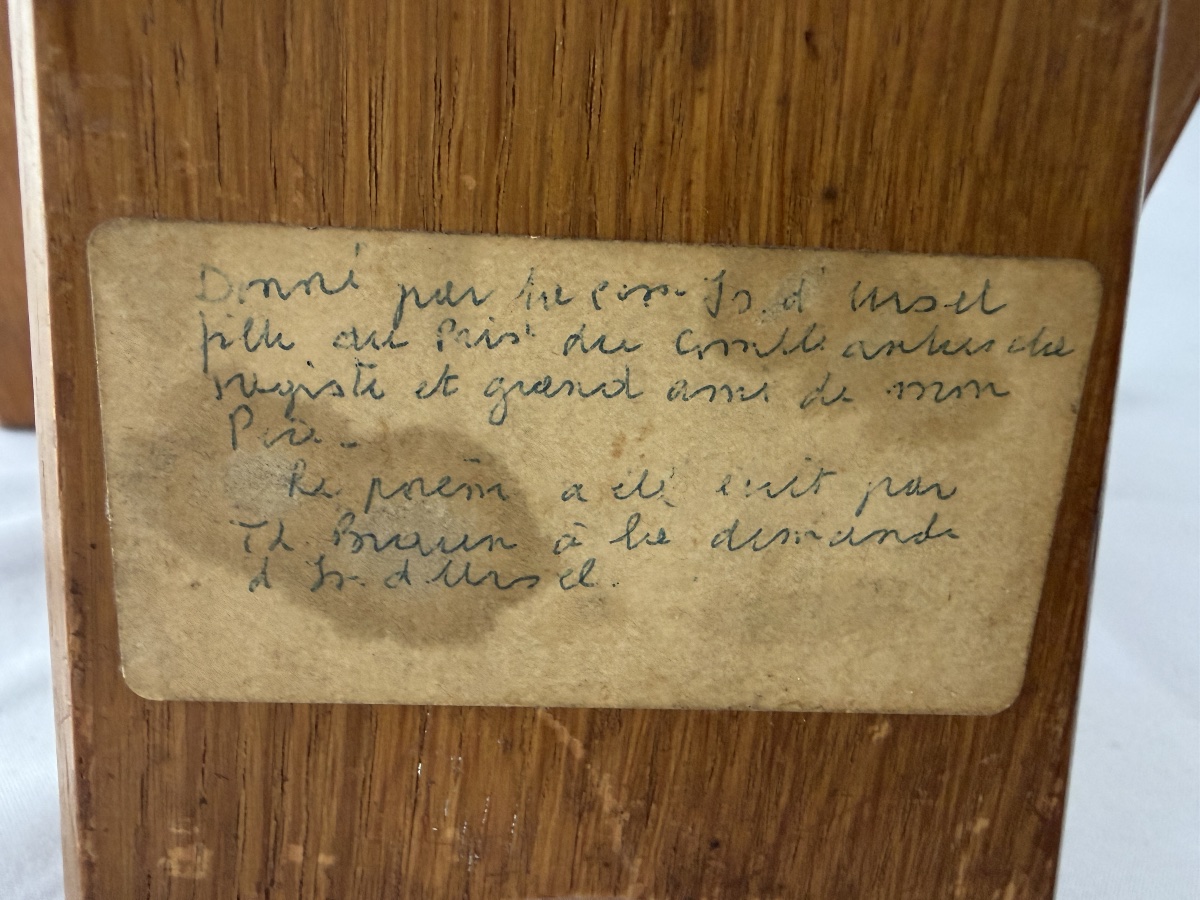 Donné par la Comsse Is. d'Ursel
fille du Prist du Comité antiescla
vagiste et grand ami de mon
Père -
Le poème a été écrit par
Th Braun à la demande
d'Is. d'Ursel.